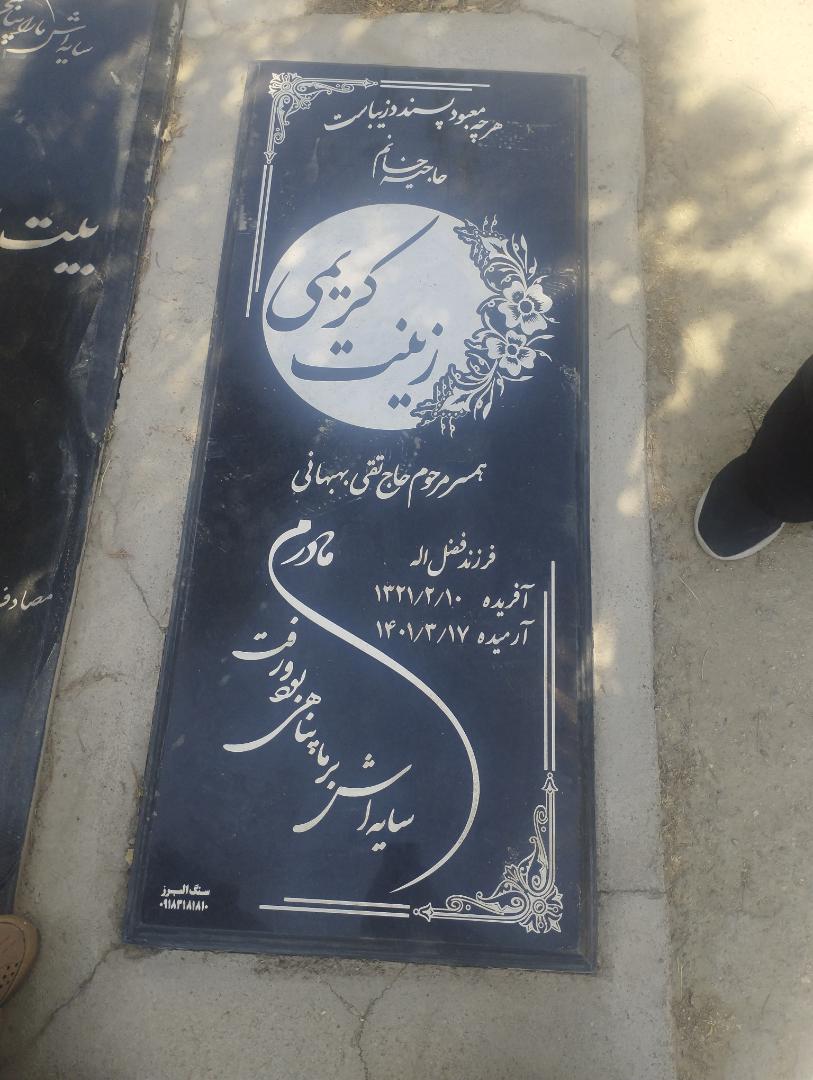 هرچه معبود پسندد زیباست
حاجیه خانم
زینت کریمی
همسر مرحوم حاج تقی بهبهانی
فرزند فضل اله
آفریده ۱۳۲۱/۲/۱۰
آرمیده ۱۴۰۱/۳/۱۷
مادرم
سایه اش بر ما پناهی بود و رفت
سنگ البرز
۰۹۱۸۳۱۸۱۸۱۰
سایه اش ما را
بیت
مصادف